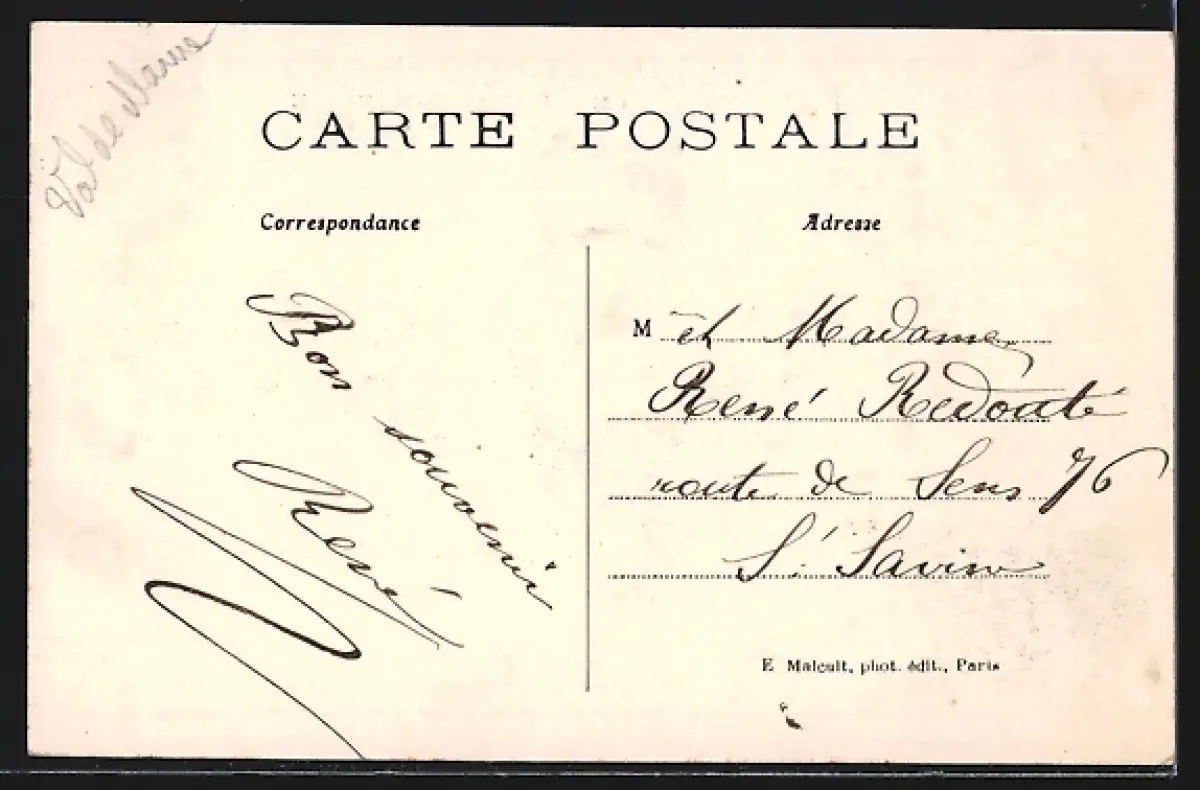 Val de Marne
CARTE POSTALE
Correspondance
Bon souvenir
René
Adresse
M et Madame
René Redouté
route de Sens 76
St. Savine
E Malcuit, phot. édit., Paris